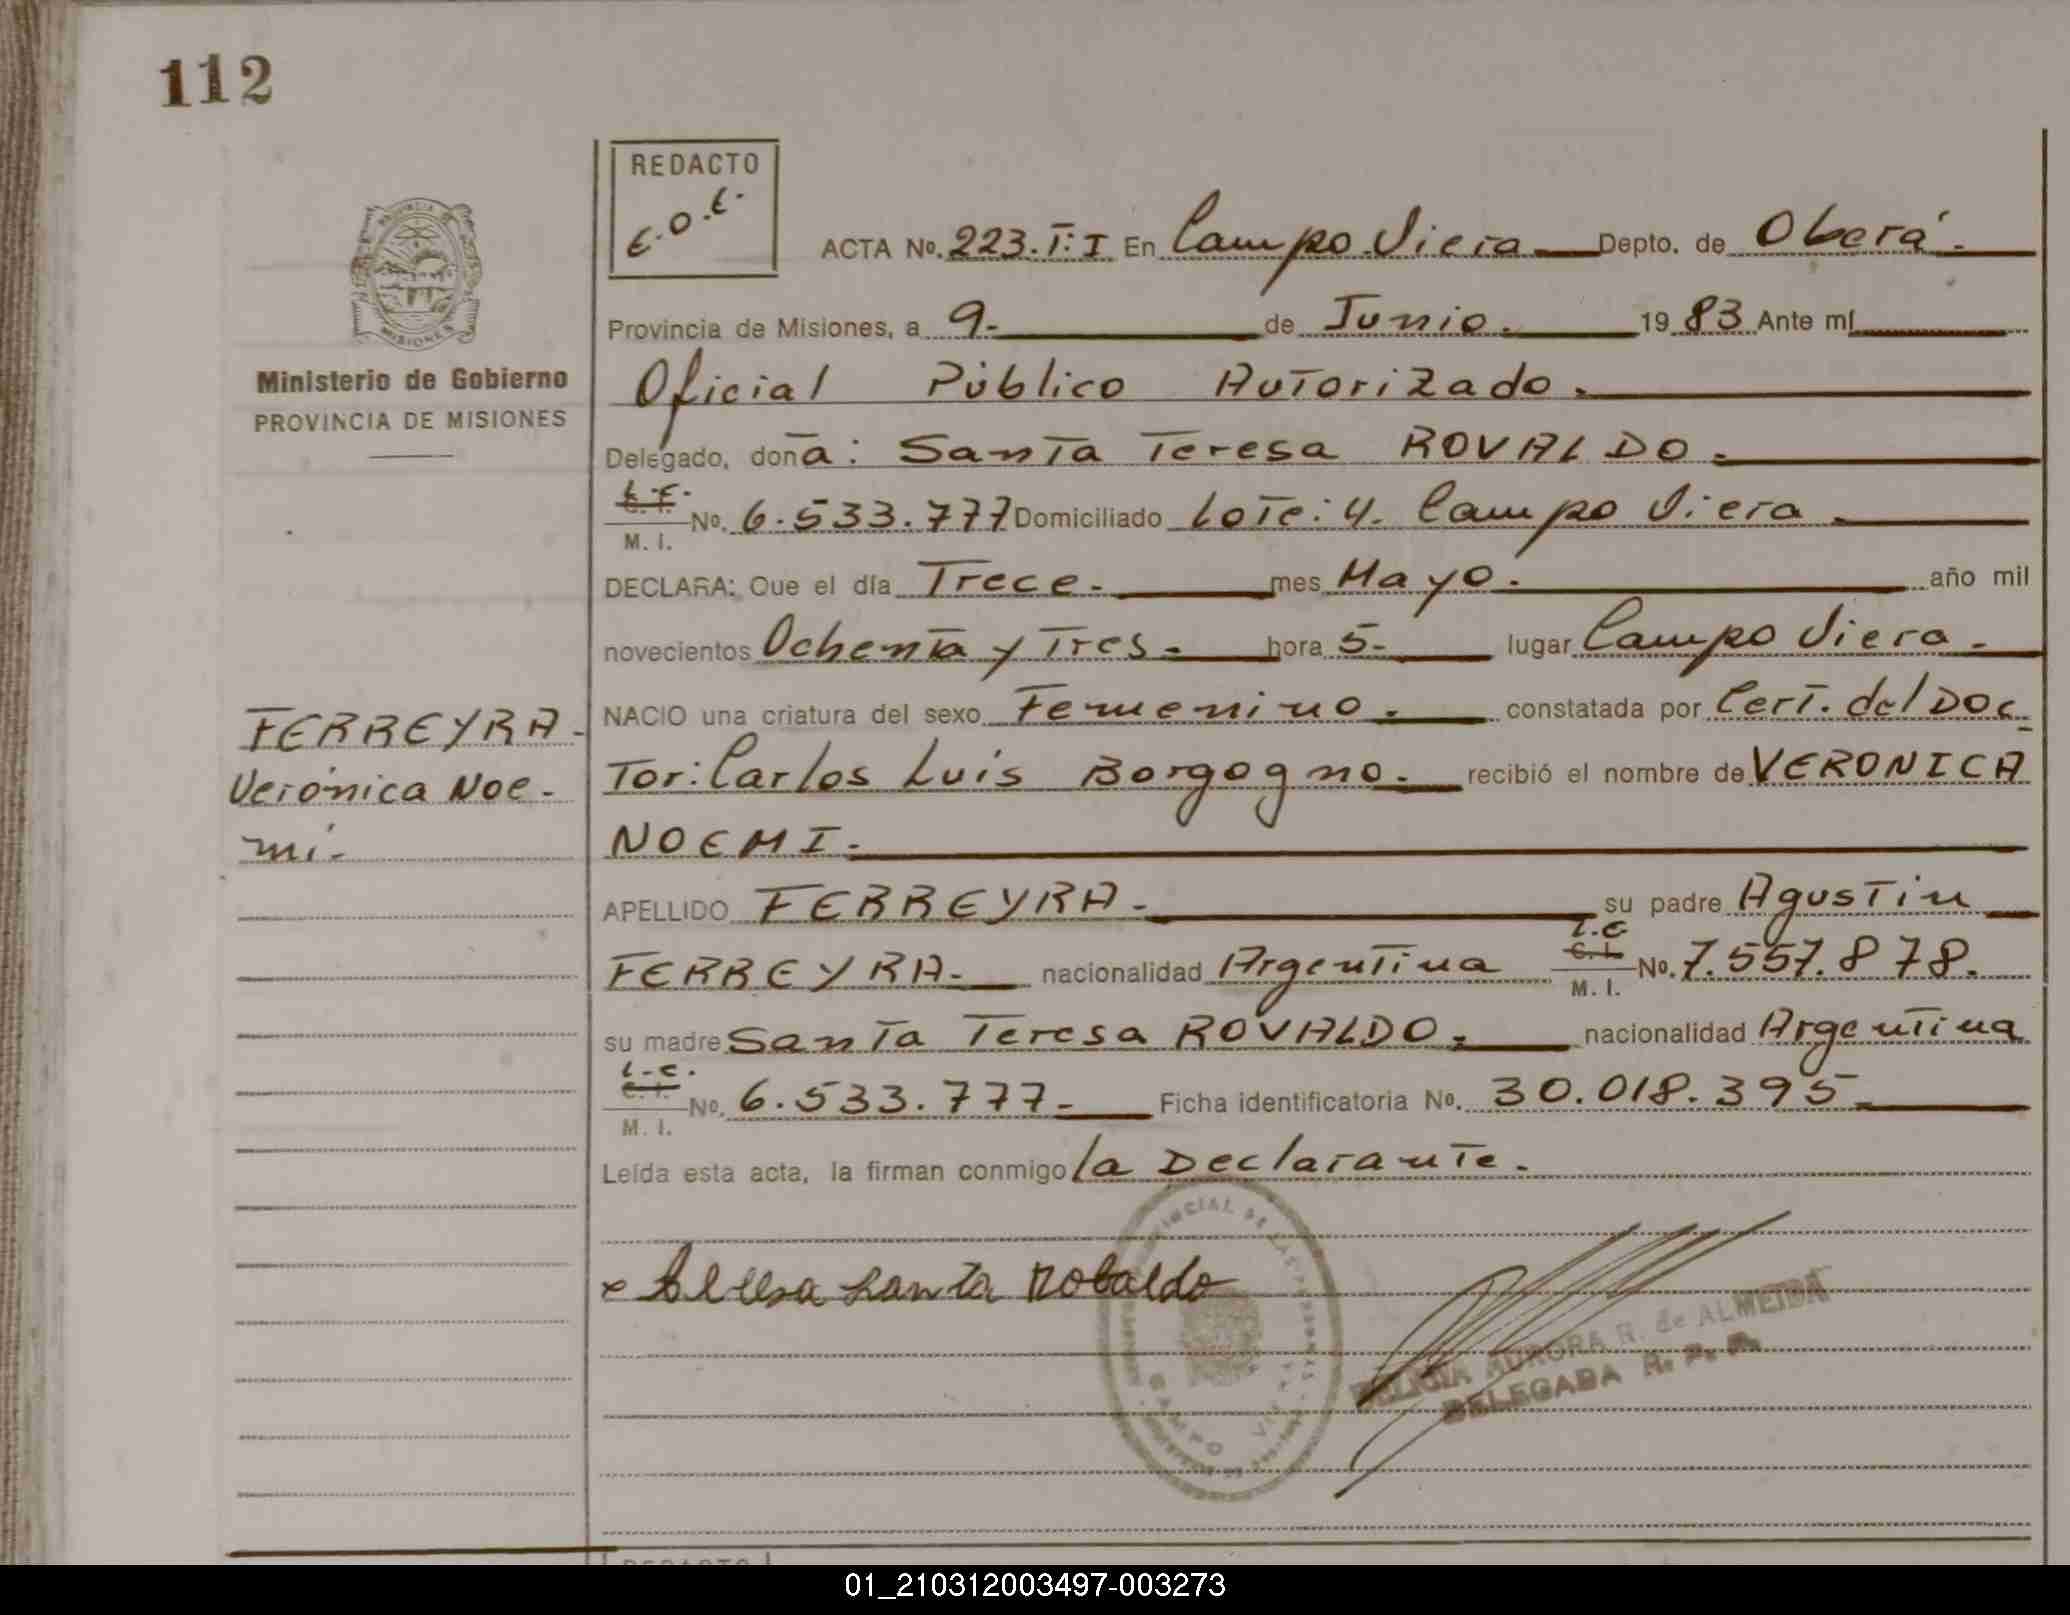 112
REDACTO
E.O.E.
ACTA Nº. 223. T: I En Campo Viera Depto. de Oberá.
Provincia de Misiones, a 9. de Junio. 19 83 Ante mí
Ministerio de Gobierno
PROVINCIA DE MISIONES
Oficial Público Autorizado.
Delegado, doña: Santa Teresa ROVALDO.
L.C.
C. I.
M. I.
Nº. 6.533.777 Domiciliado Lote: 4. Campo Viera.
DECLARA: Que el día Trece. mes Mayo. año mil
novecientos Ochenta y Tres. hora 5. lugar Campo Viera.
NACIO una criatura del sexo Femenino. constatada por Cert. del Doc
Tor: Carlos Luis Borgogno. recibió el nombre de VERONICA
NOEMI.
FERREYRA.
Verónica Noe-
mí.
APELLIDO FERREYRA. su padre Agustin
FERREYRA. nacionalidad Argentina L.E C. I. M. I. Nº. 7.557.878.
su madre Santa Teresa ROVALDO. nacionalidad Argentina
L.C.
C. I.
M. I.
Nº. 6.533.777. Ficha identificatoria Nº. 30.018.395
Leída esta acta, la firman conmigo la Declarante.
Santa Robaldo
AURORA R. de ALMEIDA
DELEGADA R. P. P.
CAMPO VIERA
MISIONES
REDACTO
01_210312003497-003273